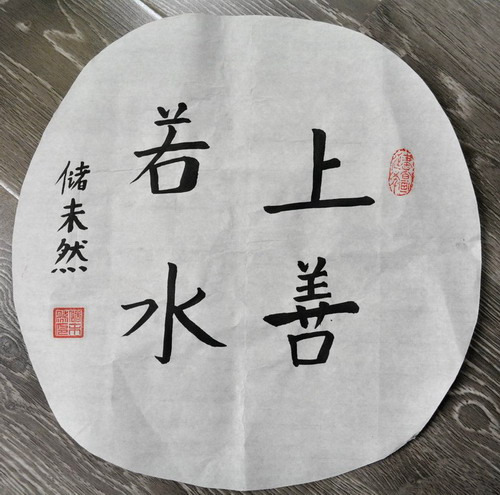 上善
若水
储未然